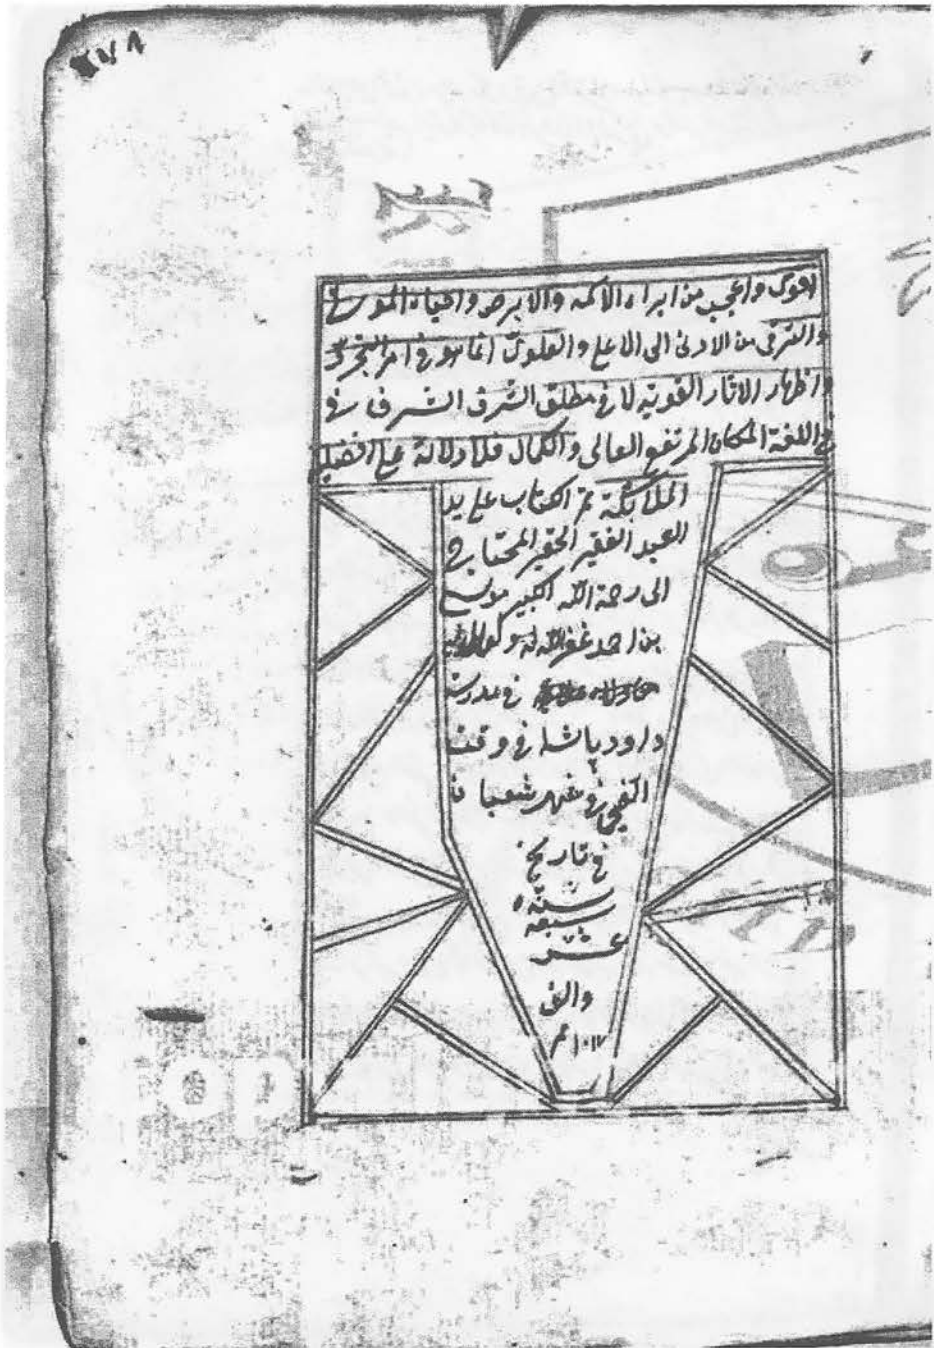 اقوى واعجب من ابراء الاكمه والابرص واحياء الموتى
والترقى من الادنى الى الاعلى والعلوى انما هو فى امر التجرد
واظهار الاثار القويه لا فى مطلق الشرف الشرف فى
اللغة المكان المرتفع العالى والكمال فلا دلالة على افضلية
الملائكة تم الكتاب على يد
العبد الفقير الحقير المحتاج
الى رحمة الله الكبير موسى
بن احمد غفر الله له ولوالديه
فى مدرسة
داود پاشا فى وقت
الفجر فى شهر شعبان
فى تاريخ
سنة
سبعة
عشر
والف
١٠١٧